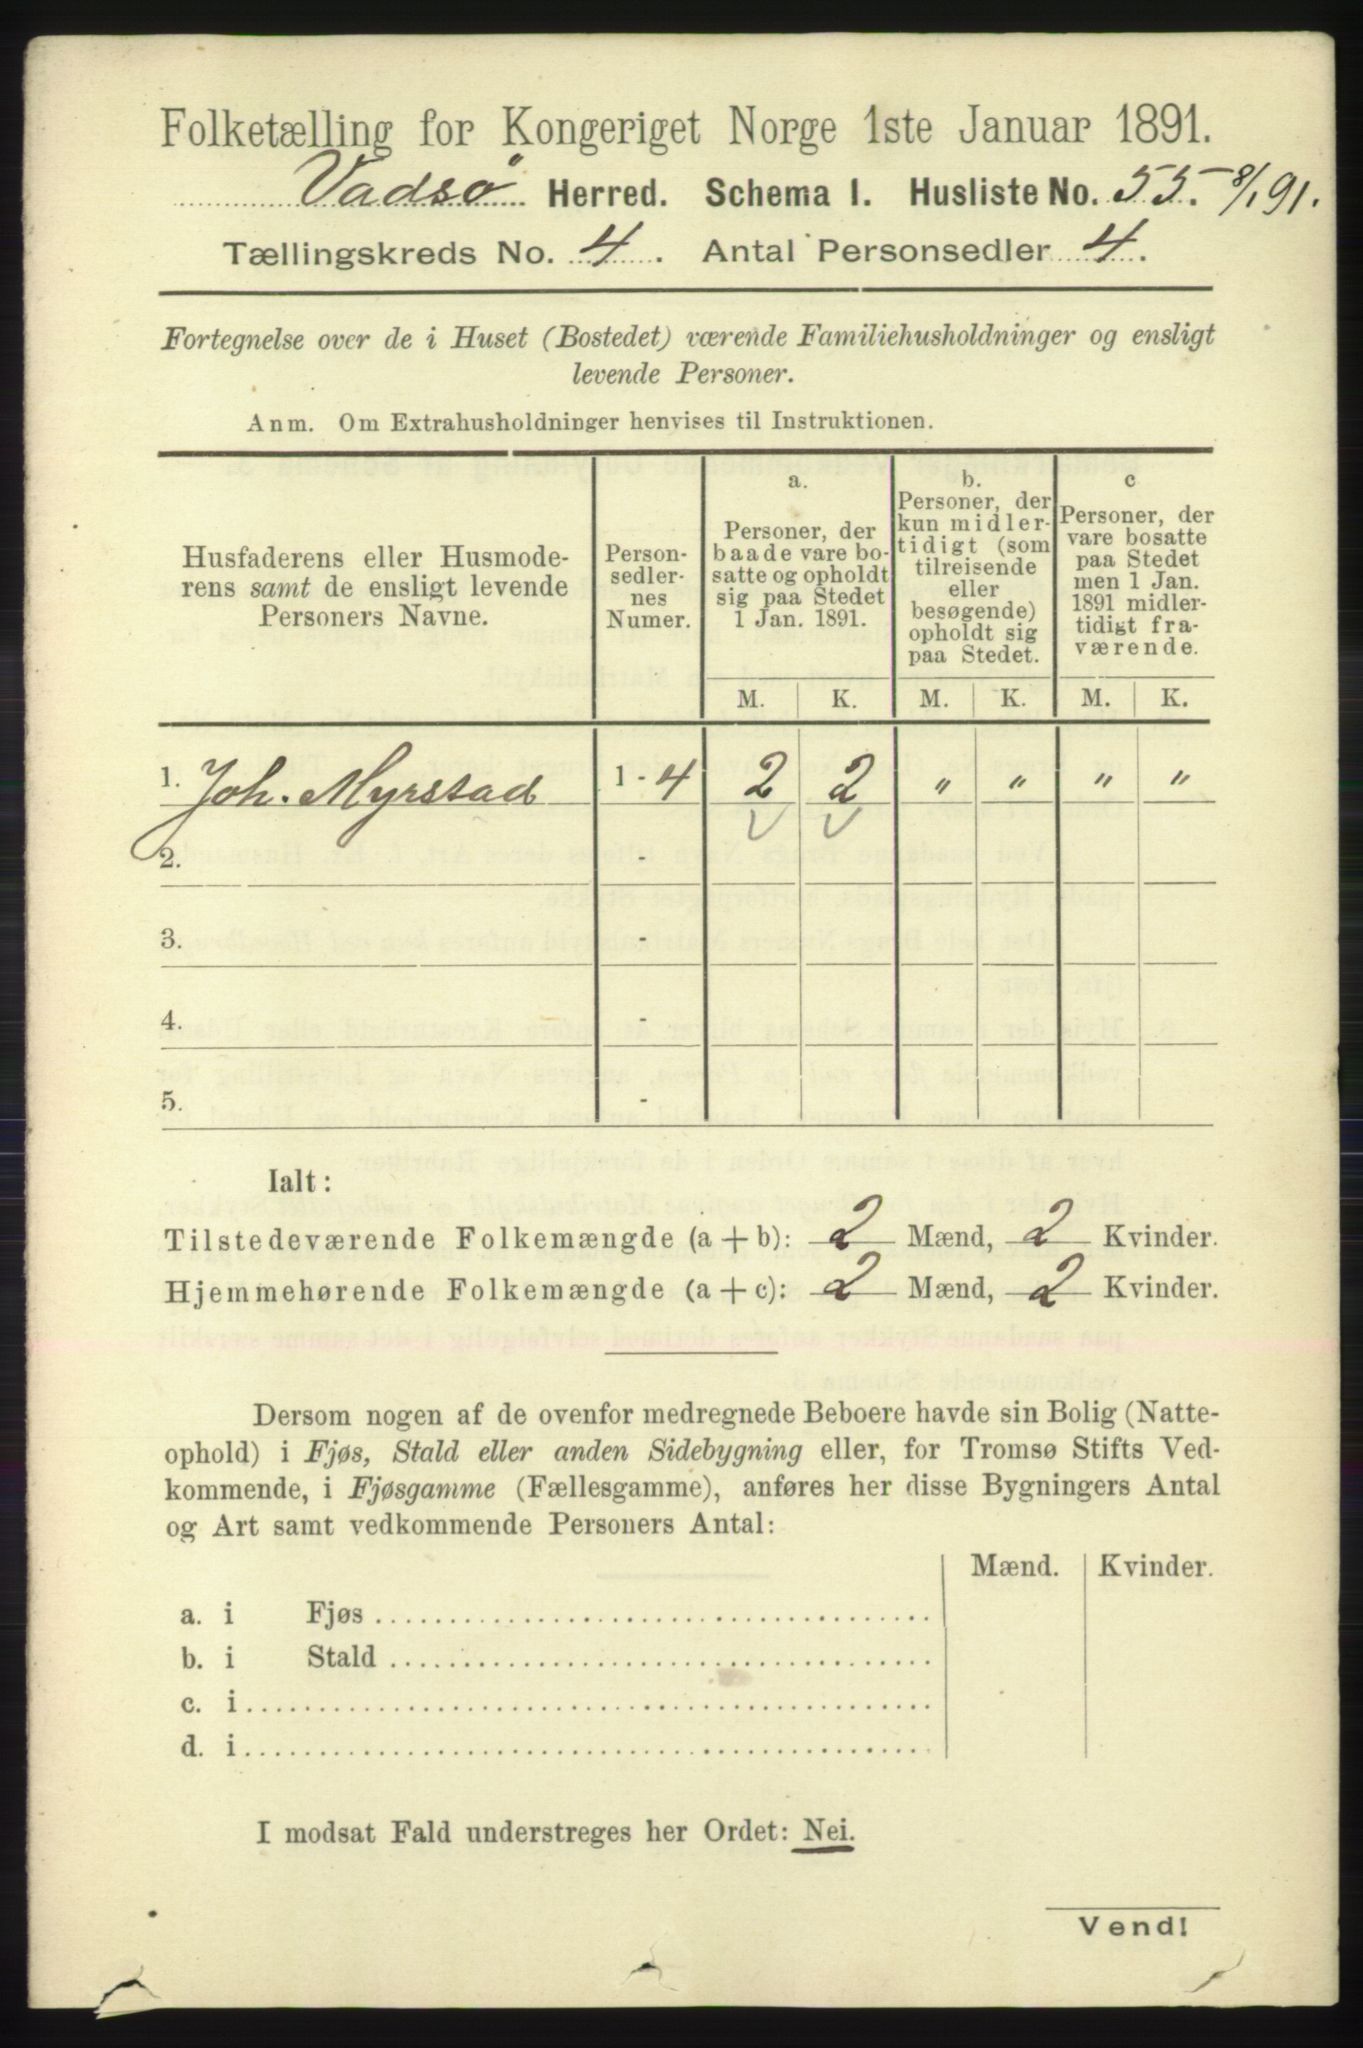 Folketælling for Kongeriget Norge 1ste Januar 1891.
Vadsø Herred. Schema I. Husliste No. 55. 8/1 91.
Tællingskreds No. 4. Antal Personsedler 4.
Fortegnelse over de i Huset (Bostedet) værende Familiehusholdninger og ensligt
levende Personer.
Anm. Om Extrahusholdninger henvises til Instruktionen.
Husfaderens eller Husmode-
rens samt de ensligt levende
Personers Navne.
Person-
sedler-
nes
Numer.
a.
Personer, der
baade vare bo-
satte og opholdt
sig paa Stedet
1 Jan. 1891.
b.
Personer, der
kun midler-
tidigt (som
tilreisende
eller
besøgende)
opholdt sig
paa Stedet.
c
Personer, der
vare bosatte
paa Stedet
men 1 Jan.
1891 midler-
tidigt fra-
værende.
M. K. M. K. M. K.
1. Joh. Myrstad 1 - 4 2 2 " " " "
2. -
3. -
4. -
5. -
Ialt:
Tilstedeværende Folkemængde (a + b): 2 Mænd, 2 Kvinder.
Hjemmehørende Folkemængde (a + c): 2 Mænd, 2 Kvinder.
Dersom nogen af de ovenfor medregnede Beboere havde sin Bolig (Natte-
ophold) i Fjøs, Stald eller anden Sidebygning eller, for Tromsø Stifts Ved-
kommende, i Fjøsgamme (Fællesgamme), anføres her disse Bygningers Antal
og Art samt vedkommende Personers Antal:
Mænd. Kvinder.
a. i Fjøs
b. i Stald
c. i
d. i
I modsat Fald understreges her Ordet: Nei.
Vend!